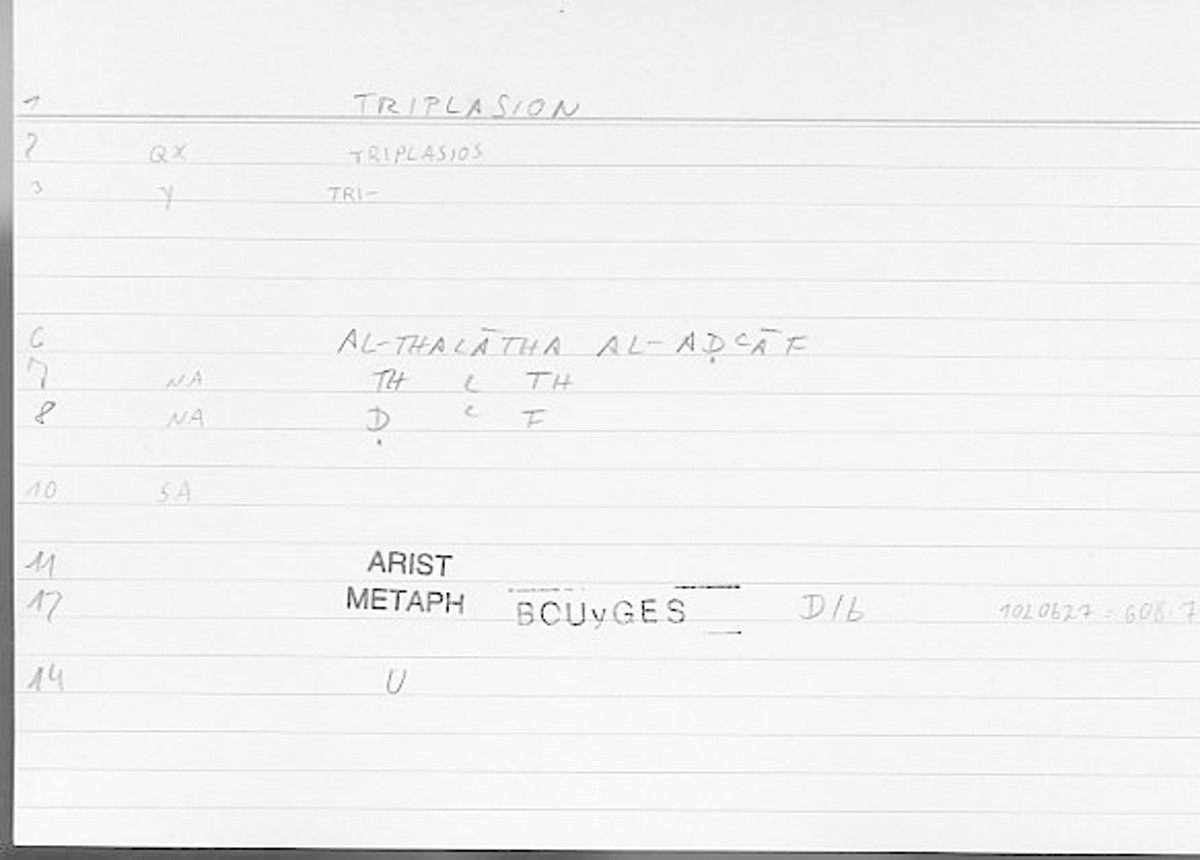 1 TRIPLASION
2 QX TRIPLASIOS
3 Y TRI-
6 AL-THALĀTHA AL-AḌCĀF
7 NA TH L TH
8 NA Ḍ c F
10 SA
11 ARIST
12 METAPH BCUyGES D/b 1020b27 = 608.7
14 U